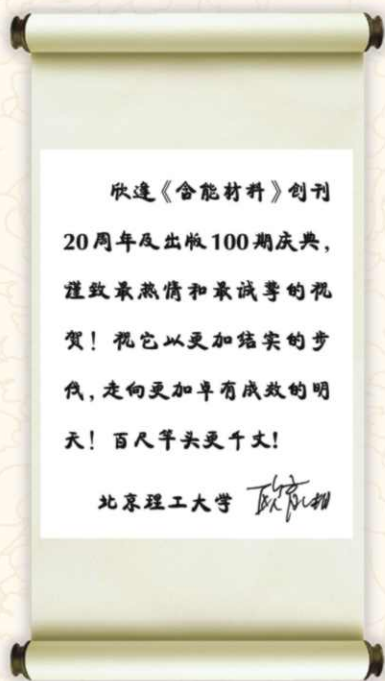 欣逢《含能材料》创刊
20周年及出版100期庆典，
谨致最热情和最诚挚的祝
贺！祝它以更加结实的步
伐，走向更加卓有成效的明
天！百尺竿头更千丈！
北京理工大学 欧育湘